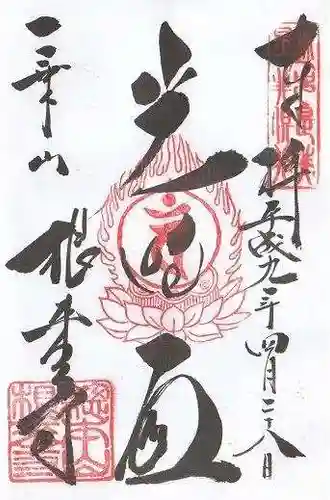 奉拝
平成九年四月二十八日
光明殿
一乗山
根来寺